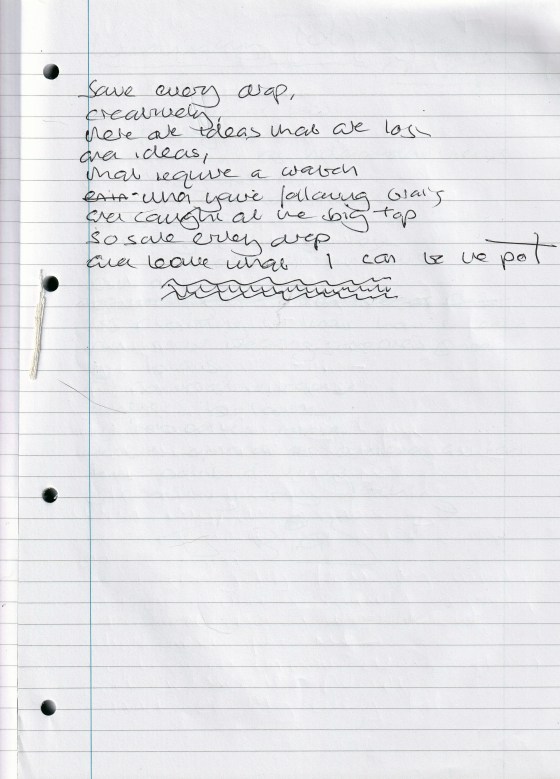 Save every drop,
creatively,
there are ideas that are lost
and ideas,
that require a watch
when you're following trails
and caught at the big top
so save every drop
and leave what I can in the pot